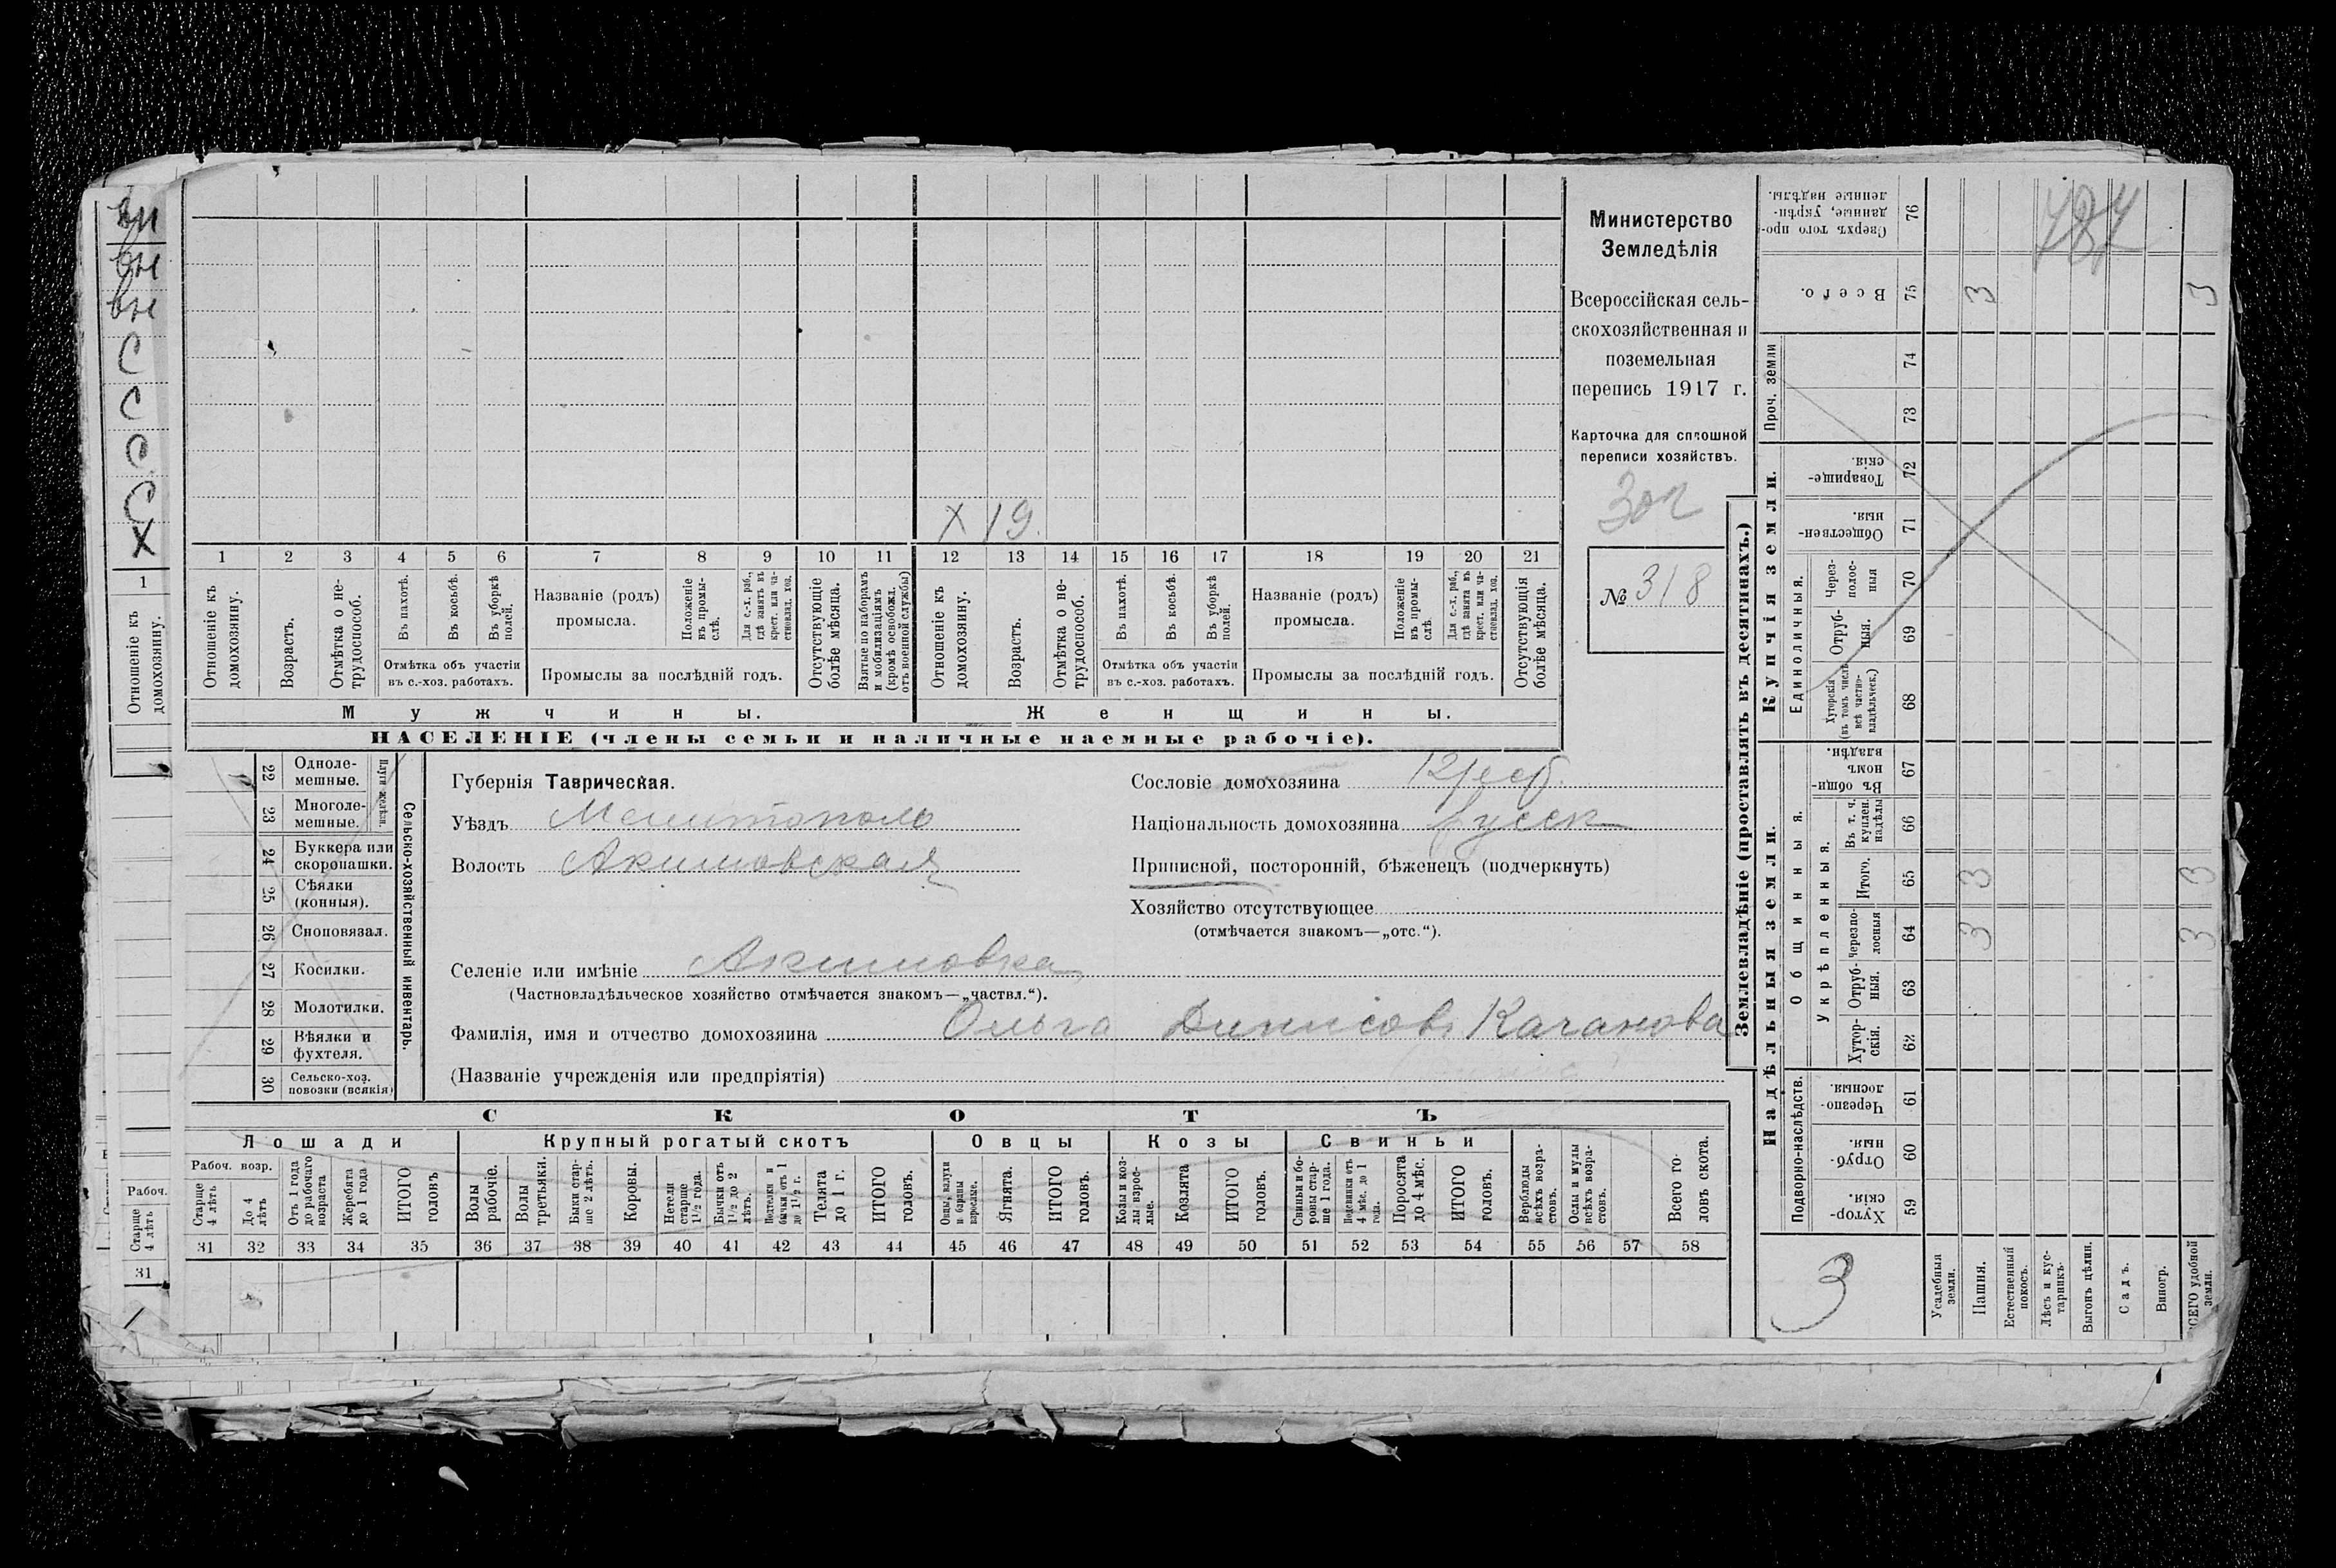 вн
вн
вн
С
С
С
С
Х
1
Отношеніе къ домохозяину.
Рабоч.
Старше 4 лѣтъ
31
Х 19.
1 2 3 4 5 6 7 8 9 10 11 12 13 14 15 16 17 18 19 20 21
Отношеніе къ домохозяину.
Возрастъ.
Отмѣтка о не-трудоспособ.
Въ пахотѣ.
Въ косьбѣ.
Въ уборкѣ полей.
Отмѣтка объ участіи въ с.-хоз. работахъ.
Названіе (родъ) промысла.
Положеніе въ промы-слѣ.
Для с.-х. раб., гдѣ занятъ въ крест. или ча-стновлад. хоз.
Промыслы за послѣдній годъ.
Отсутствующіе болѣе мѣсяца.
Взятые по наборамъ и мобилизаціямъ (кромѣ освобожд. отъ военной службы)
Отношеніе къ домохозяину.
Возрастъ.
Отмѣтка о не-трудоспособ.
Въ пахотѣ.
Въ косьбѣ.
Въ уборкѣ полей.
Отмѣтка объ участіи въ с.-хоз. работахъ.
Названіе (родъ) промысла.
Положеніе въ промы-слѣ.
Для с.-х. раб., гдѣ занята въ крест. или ча-стновлад. хоз.
Промыслы за послѣдній годъ.
Отсутствующія болѣе мѣсяца.
Мужчины.
Женщины.
НАСЕЛЕНІЕ (члены семьи и наличные наемные рабочіе).
Министерство
Земледѣлія
Всероссійская сель-
скохозяйственная и
поземельная
перепись 1917 г.
Карточка для сплошной
переписи хозяйствъ.
№ 318
22 Одноле-мешные.
23 Многоле-мешные.
Плуги желѣзн.
24 Буккера или скоропашки.
25 Сѣялки (конныя).
26 Сноповязал.
27 Косилки.
28 Молотилки.
29 Вѣялки и фухтеля.
30 Сельско-хоз. повозки (всякія)
Сельско-хозяйственный инвентарь.
Губернія Таврическая.
Уѣздъ Мелитополь
Волость Акимовская
Сословіе домохозяина Крест.
Національность домохозяина русск
Приписной, посторонній, бѣженецъ (подчеркнуть)
Хозяйство отсутствующее
(отмѣчается знакомъ—„отс.“).
Селеніе или имѣніе Акимовка
(Частновладѣльческое хозяйство отмѣчается знакомъ—„частвл.“).
Фамилія, имя и отчество домохозяина Ольга Динисов. Качанова
(Названіе учрежденія или предпріятія)
СКОТЪ
Лошади
Крупный рогатый скотъ
Овцы
Козы
Свиньи
Рабоч. возр.
Старше 4 лѣтъ
До 4 лѣтъ
Отъ 1 года до рабочаго возраста
Жеребята до 1 года
ИТОГО головъ
Волы рабочіе.
Волы третьяки.
Быки стар-ше 2 лѣтъ.
Коровы.
Нетели старше 1½ года.
Бычки отъ 1½ до 2 лѣтъ.
Подтелки и бычки отъ 1 до 1½ г.
Телята до 1 г.
ИТОГО головъ.
Овцы, валухи и бараны взрослые.
Ягнята.
ИТОГО головъ.
Козы и коз-лы взрос-лые.
Козлята
ИТОГО головъ.
Свиньи и бо-ровы стар-ше 1 года.
Подсвинки отъ 4 мѣс. до 1 года.
Поросята до 4 мѣс.
ИТОГО головъ.
Верблюды всѣхъ возра-стовъ.
Ослы и мулы всѣхъ возра-стовъ.
Всего го-ловъ скота.
31 32 33 34 35 36 37 38 39 40 41 42 43 44 45 46 47 48 49 50 51 52 53 54 55 56 57 58
Землевладѣніе (проставлять въ десятинахъ.)
Надѣльныя земли.
Купчія земли.
Проч. земли
Подворно-наслѣдств.
Общинныя.
Укрѣпленныя.
Единоличныя.
Сверхъ того про-данные, укрѣп-ленные надѣлы. 76
Всего. 75 3 3
74
73
Товарище-скія. 72
Обществен-ныя. 71
Через-полос-ныя 70
Отруб-ныя. 69
Хуторскія (въ томъ числѣ всѣ частно-владѣльческ.) 68
Въ общин-номъ владѣн. 67
Въ т. ч. куплен. надѣлы 66
Итого. 65 3 3
Черезпо-лосныя 64 3 3
Отруб-ныя. 63
Хутор-скія. 62
Черезпо-лосныя. 61
Отруб-ныя. 60
Хутор-скія. 59
3
Усадебныя земли.
Пашня.
Естественный покосъ.
Лѣсъ и кус-тарникъ.
Выгонъ цѣлин.
Садъ.
Виногр.
ВСЕГО удобной земли.